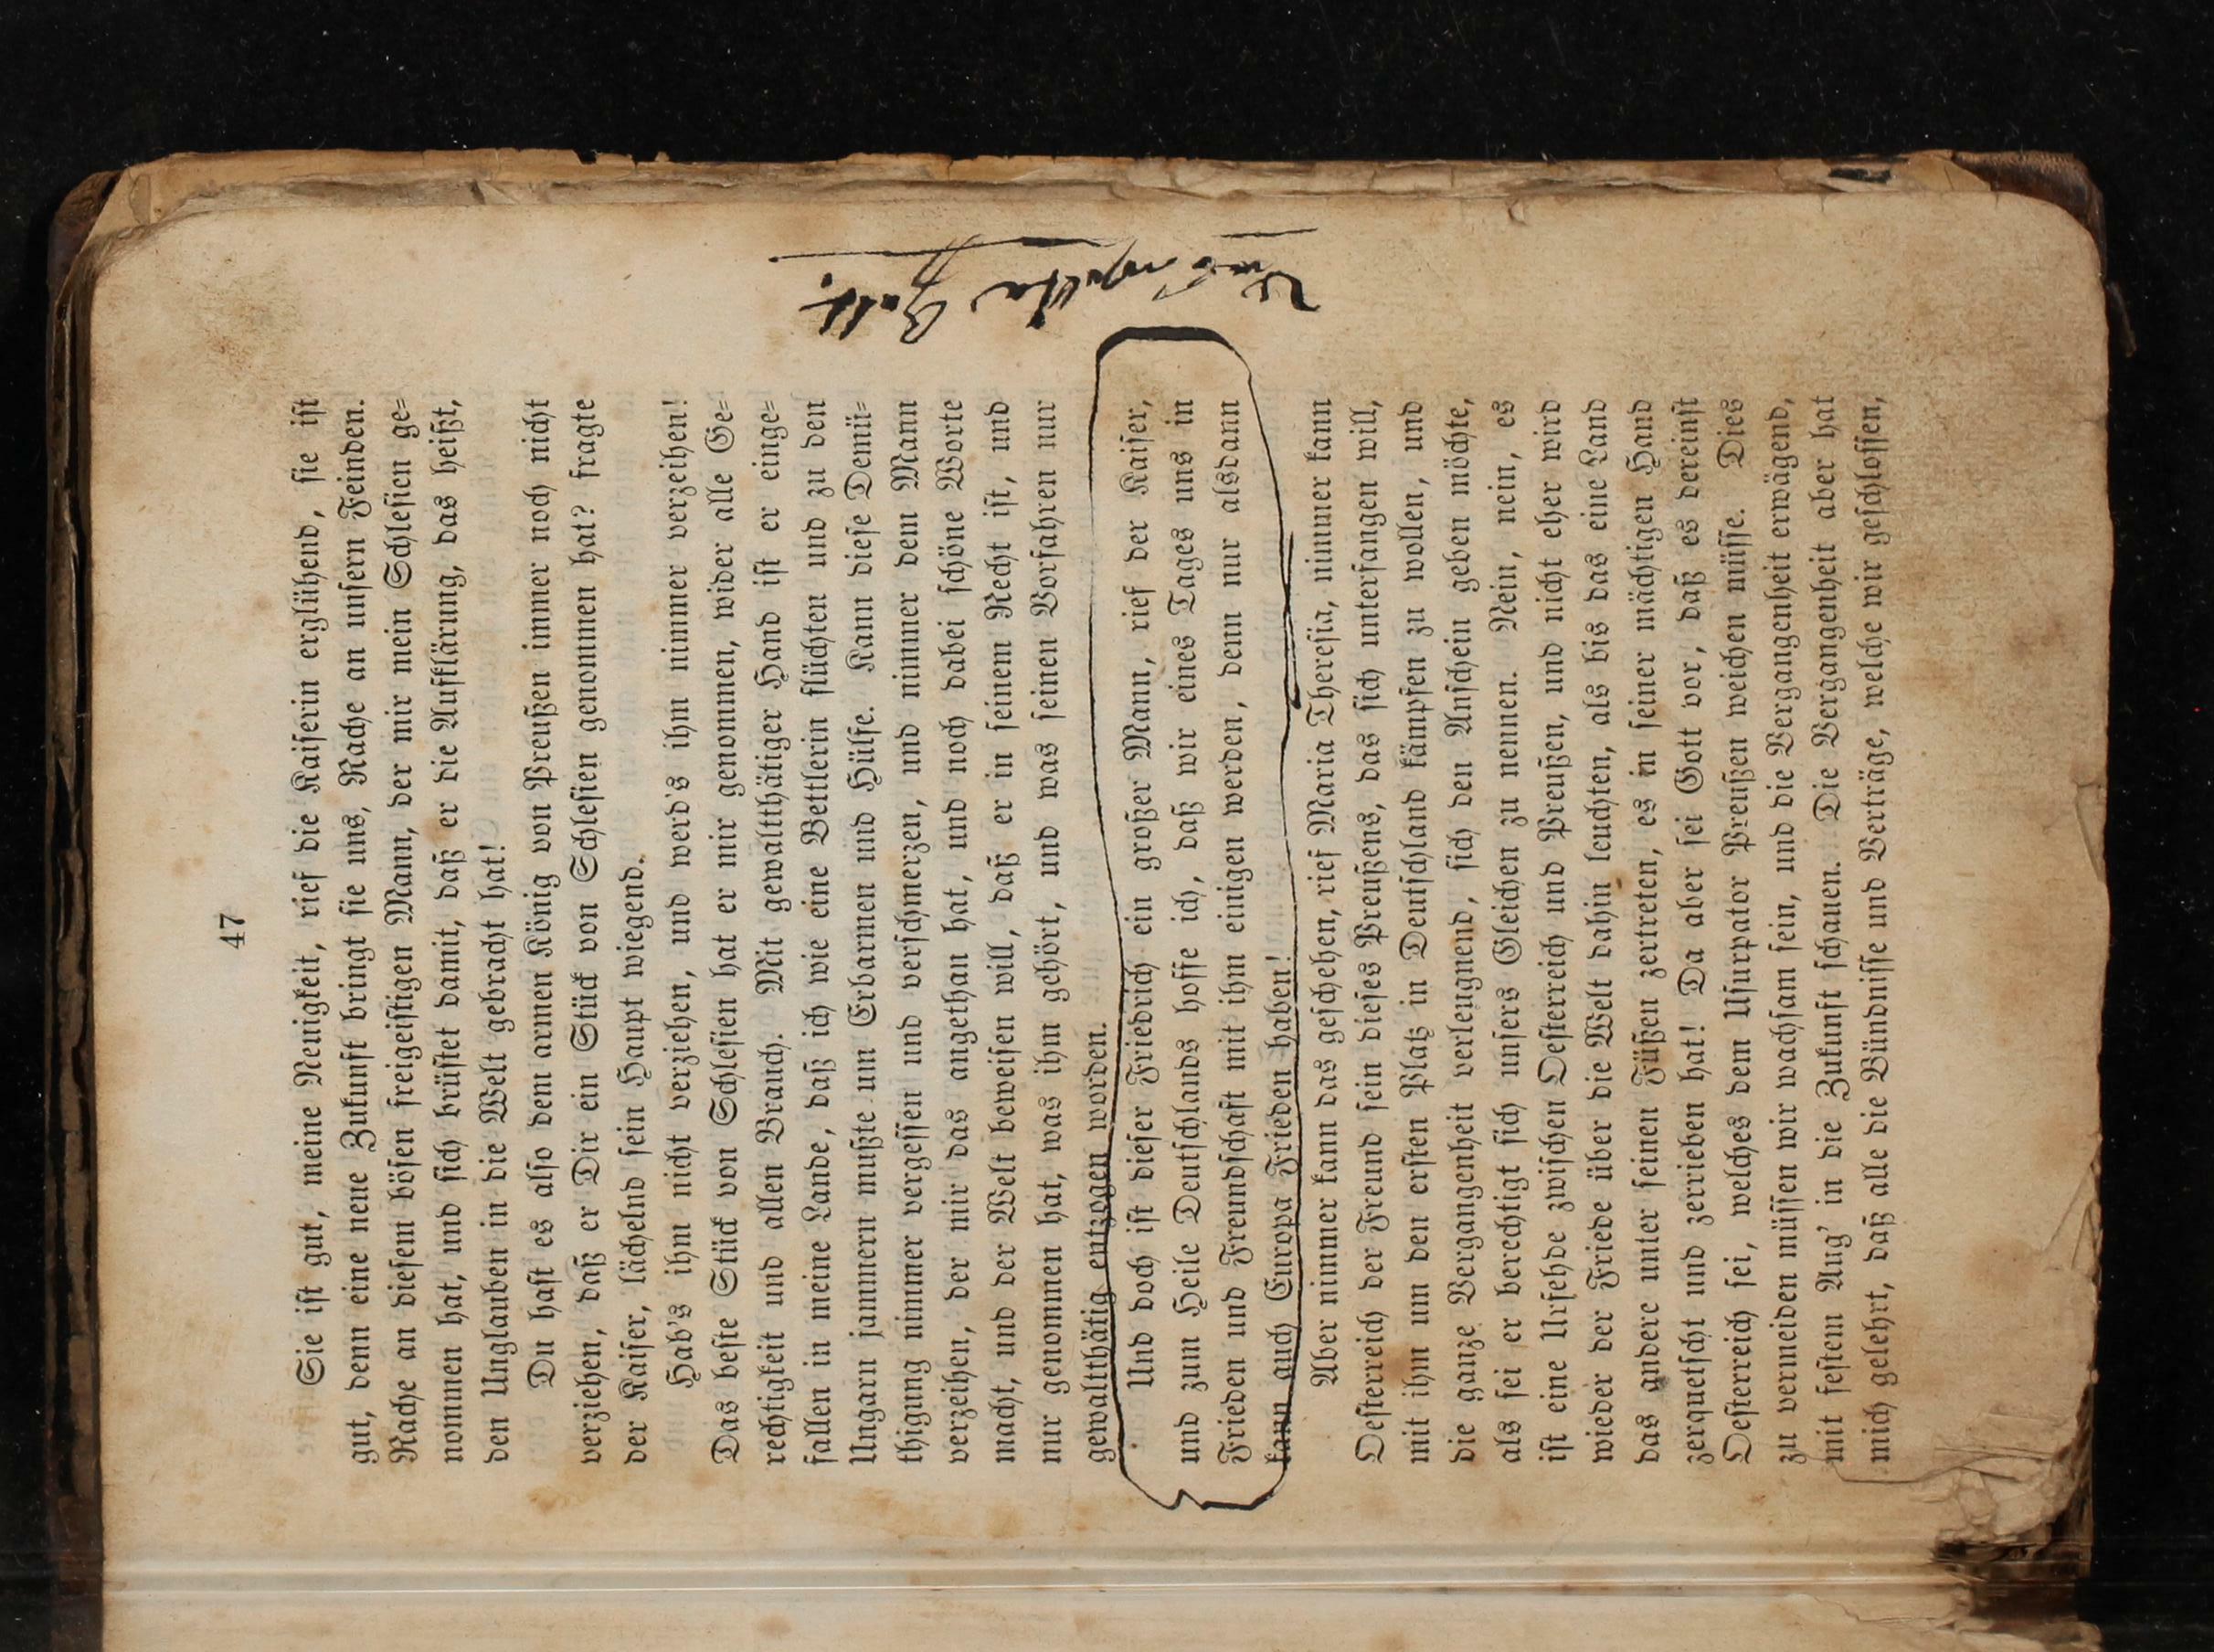 47
Sie iſt gut, meine Neuigkeit, rief die Kaiſerin erglühend, ſie iſt
gut, denn eine neue Zukunft bringt ſie uns, Rache an unſern Feinden.
Rache an dieſem böſen freigeiſtigen Mann, der mir mein Schleſien ge=
nommen hat, und ſich brüſtet damit, daß er die Aufklärung, das heißt,
den Unglauben in die Welt gebracht hat!
Du haſt es alſo dem armen König von Preußen immer noch nicht
verziehen, daß er Dir ein Stück von Schleſien genommen hat? fragte
der Kaiſer, lächelnd ſein Haupt wiegend.
Hab's ihm nicht verziehen, und werd's ihm nimmer verzeihen!
Das beſte Stück von Schleſien hat er mir genommen, wider alle Ge=
rechtigkeit und allen Brauch. Mit gewaltthätiger Hand iſt er einge=
fallen in meine Lande, daß ich wie eine Bettlerin flüchten und zu den
Ungarn jammern mußte um Erbarmen und Hülfe. Kann dieſe Demü=
thigung nimmer vergeſſen und verſchmerzen, und nimmer dem Mann
verzeihen, der mir das angethan hat, und noch dabei ſchöne Worte
macht, und der Welt beweiſen will, daß er in ſeinem Recht iſt, und
nur genommen hat, was ihm gehört, und was ſeinen Vorfahren nur
gewaltthätig entzogen worden.
Und doch iſt dieſer Friedrich ein großer Mann, rief der Kaiſer,
und zum Heile Deutſchlands hoffe ich, daß wir eines Tages uns in
Frieden und Freundſchaft mit ihm einigen werden, denn nur alsdann
kann auch Europa Frieden haben!
Aber nimmer kann das geſchehen, rief Maria Thereſia, nimmer kann
Oeſterreich der Freund ſein dieſes Preußens, das ſich unterfangen will,
mit ihm um den erſten Platz in Deutſchland kämpfen zu wollen, und
die ganze Vergangenheit verleugnend, ſich den Anſchein geben möchte,
als ſei er berechtigt ſich unſers Gleichen zu nennen. Nein, nein, es
iſt eine Urfehde zwiſchen Oeſterreich und Preußen, und nicht eher wird
wieder der Friede über die Welt dahin leuchten, als bis das eine Land
das andere unter ſeinen Füßen zertreten, es in ſeiner mächtigen Hand
zerquetſcht und zerrieben hat! Da aber ſei Gott vor, daß es dereinſt
Oeſterreich ſei, welches dem Uſurpator Preußen weichen müſſe. Dies
zu vermeiden müſſen wir wachſam ſein, und die Vergangenheit erwägend,
mit feſtem Aug' in die Zukunft ſchauen. Die Vergangenheit aber hat
mich gelehrt, daß alle die Bündniſſe und Verträge, welche wir geſchloſſen,